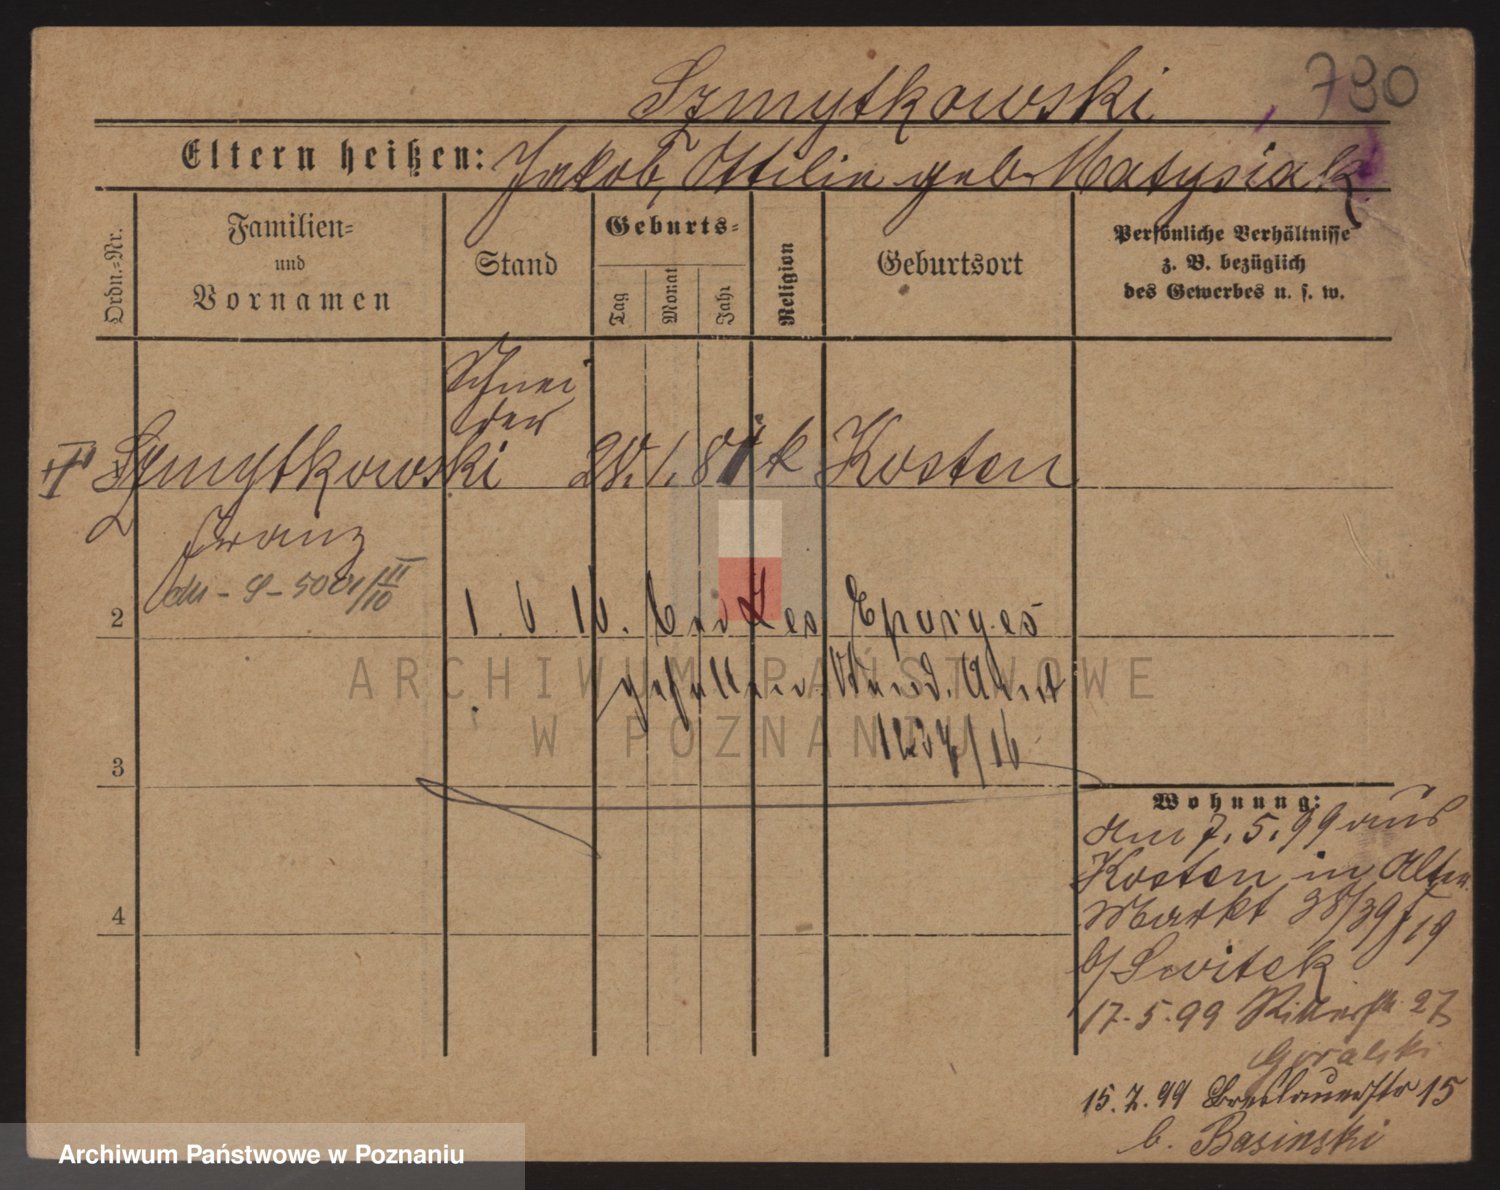 780
Szmytkowski
Eltern heißen: Jakob, Ottilie geb. Matysiak
Ordn.-Nr.
Familien-
und
Vornamen
Stand
Geburts-
Tag
Monat
Jahr
Religion
Geburtsort
Persönliche Verhältnisse
z. B. bezüglich
des Gewerbes u. s. w.
Schnei
der
Szmytkowski 28. 1. 81 k Kosten
Franz
2
1. 6. 16. Les Eparges
gefallen. Stand. Amt
1237/16
3
4
Wohnung:
am 7. 5. 99 aus
Kosten in Alter
Markt 38/39
b/ Switek
17. 5. 99 Ritterstr. 27
Goralski
15. 7. 99 Breslauerstr 15
b. Basinski
ARCHIWUM PAŃSTWOWE
W POZNANIU
Archiwum Państwowe w Poznaniu